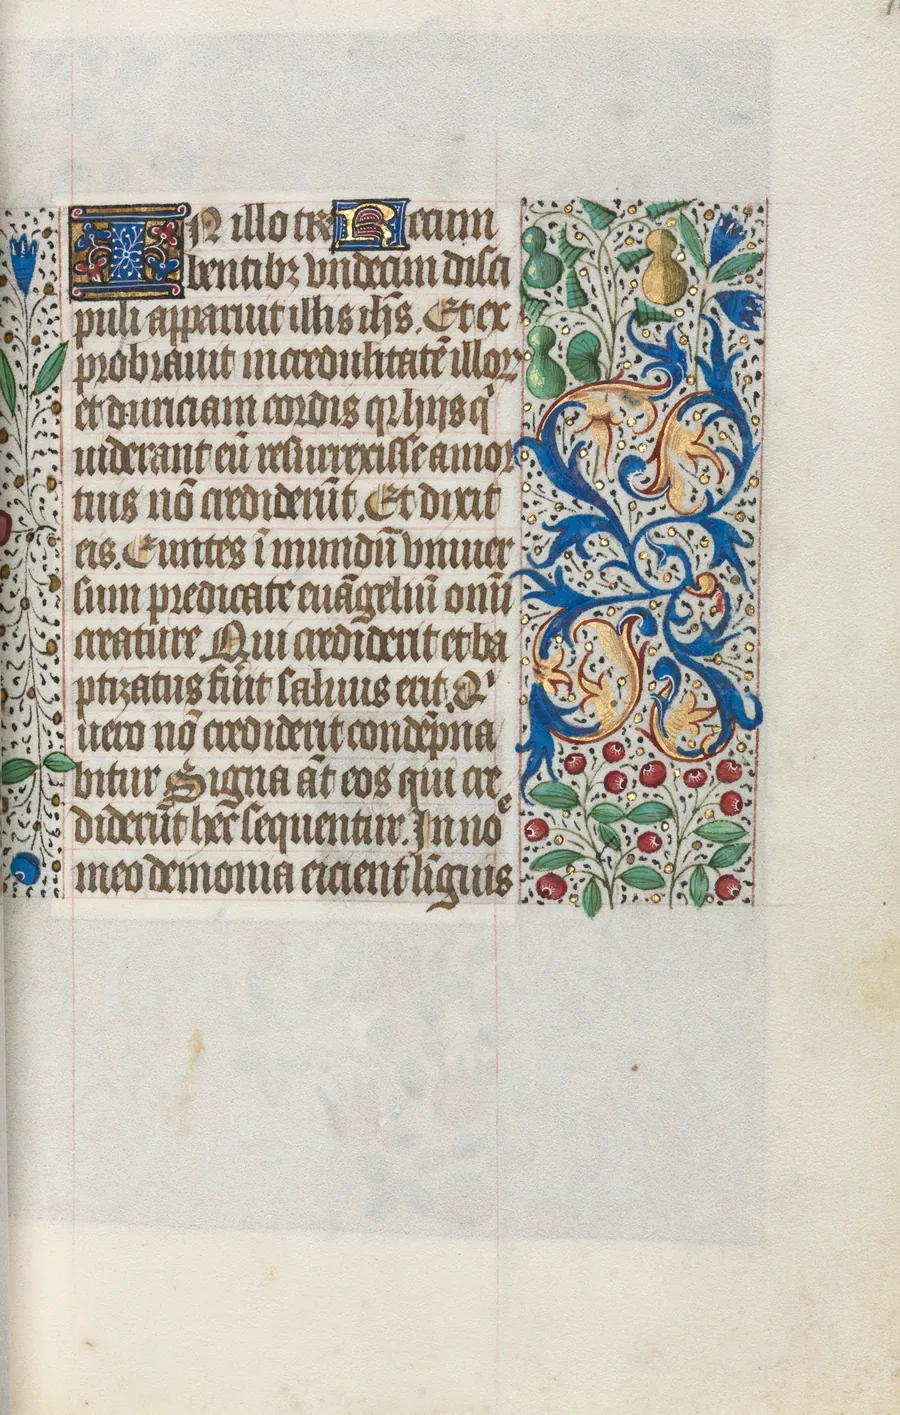 IN illo tꝑe Recum
bentibꝫ vndecim disci
puli apparuit illis ih̄s. Et ex
probrauit incredulitatē illoꝝ
et duriciam cordis qꝛ hijs q̄
uiderant eū resurrexisse a mor
tuis nō crediderūt. Et dixit
eis. Euntes ī mundū vniuer
sum predicate euāgeliū omī
creature Qui crediderit et ba
ptizatus fūit saluus erit. Qͥ
uero nō crediderit condēpna
bitur Signa āt eos qui cre
diderūt hec sequentur. In nōe
meo demonia eicient līguis